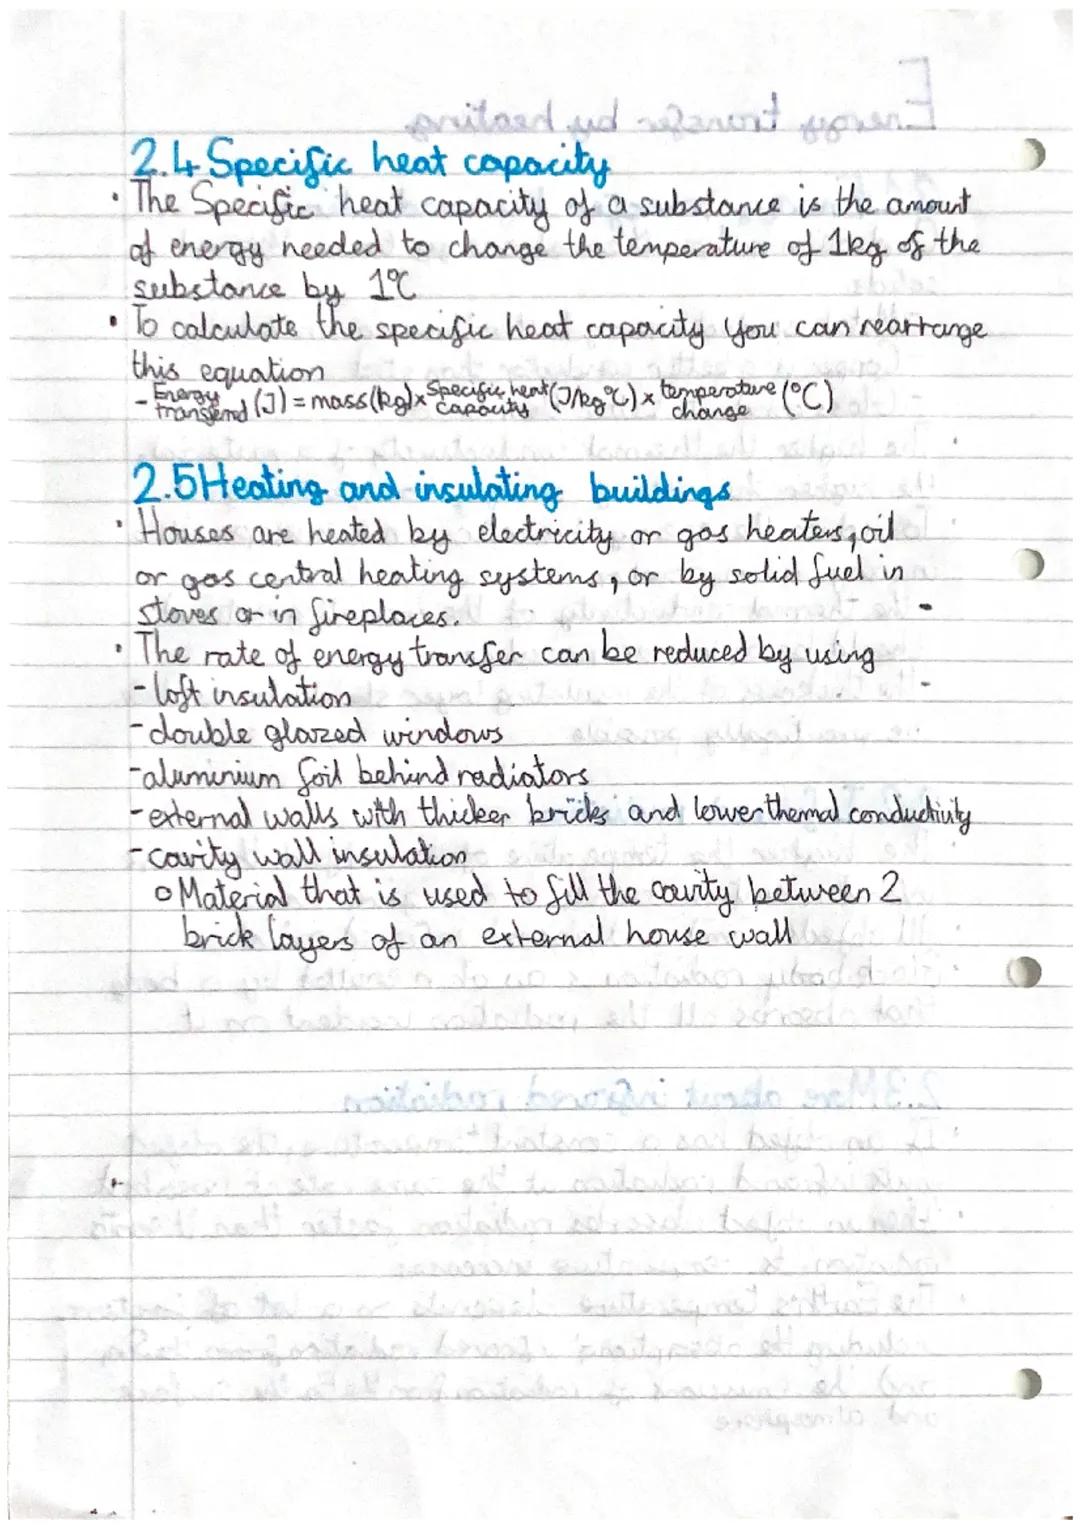 2.4 Specific heat capacity
• The Specific heat capacity of a substance is the amount
of energy needed to change the temperature of 1kg of the
substance by 1°C
• To calculate the specific heat capacity you can rearrange
this equation
- Energy (J) = mass (kg) x Specific heat (J/kg°C) x temperature (°C)
capacity change
2.5 Heating and insulating buildings
• Houses are heated by electricity or gas heaters, oil
or gas central heating systems, or by solid fuel in
stoves or in fireplaces.
• The rate of energy transfer can be reduced by using
- loft insulation
- double glazed windows
- aluminium foil behind radiators
- external walls with thicker bricks and lower thermal conductivity
- cavity wall insulation
o Material that is used to fill the cavity between 2
brick layers of an external house wall